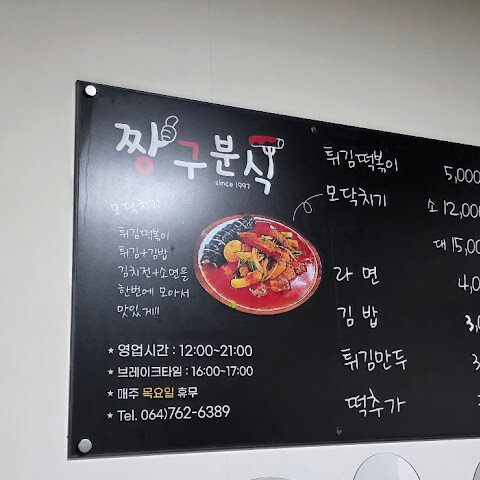 짱구분식
since 1997
모닥치기
튀김떡볶이
튀김+김밥
김치전+소면을
한번에 모아서
맛있게!!
* 영업시간 : 12:00~21:00
* 브레이크타임 : 16:00~17:00
* 매주 목요일 휴무
* Tel. 064)762-6389
튀김떡볶이 5,000
모닥치기 소 12,000
대 15,00
라면 4,0
김밥 3,
튀김만두 3
떡추가